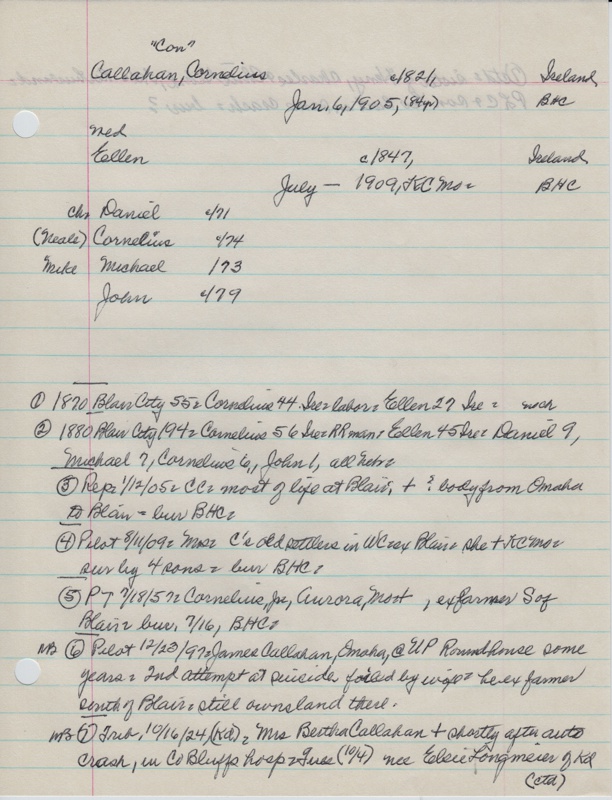 "Con"
Callahan, Cornelius c1821, Ireland
Jan. 6, 1905, (84yr) BHC
med
Ellen c1847, Ireland
July — 1909, KC Mo= BHC
chn Daniel c/71
(Neale) Cornelius c/74
Mike Michael /73
John c/79
① 1870 Blair City 55= Cornelius 44 Ire= labor= Ellen 27 Ire =
② 1880 Blair City 194= Cornelius 56 Ire= RR man= Ellen 45 Ire= Daniel 9,
Michael 7, Cornelius 6, John 1, all Neb=
③ Rep= 1/12/05= CC= most of life at Blair, + ? body from Omaha
to Blair = bur BHC=
④ Pilot 8/11/09= Mrs= C's old settlers in WC ex Blair= she + KC Mo=
sur by 4 sons = bur BHC=
⑤ PT 7/18/57= Cornelius, Jr, Aurora, , ex farmer S of
Blair= bur. 7/16, BHC=
NB ⑥ Pilot 12/23/97= James Callahan, Omaha, @ UP Roundhouse some
years = 2nd attempt at suicide foiled by wife= he ex farmer
south of Blair= still owns land there.
NB ⑦ Trib, 10/16/24 (Kd)= Mrs Bertha Callahan + shortly after auto
crash, in Co Bluffs hosp= Tues (10/4) nee Elsie Longmeier of Kd
(ctd)